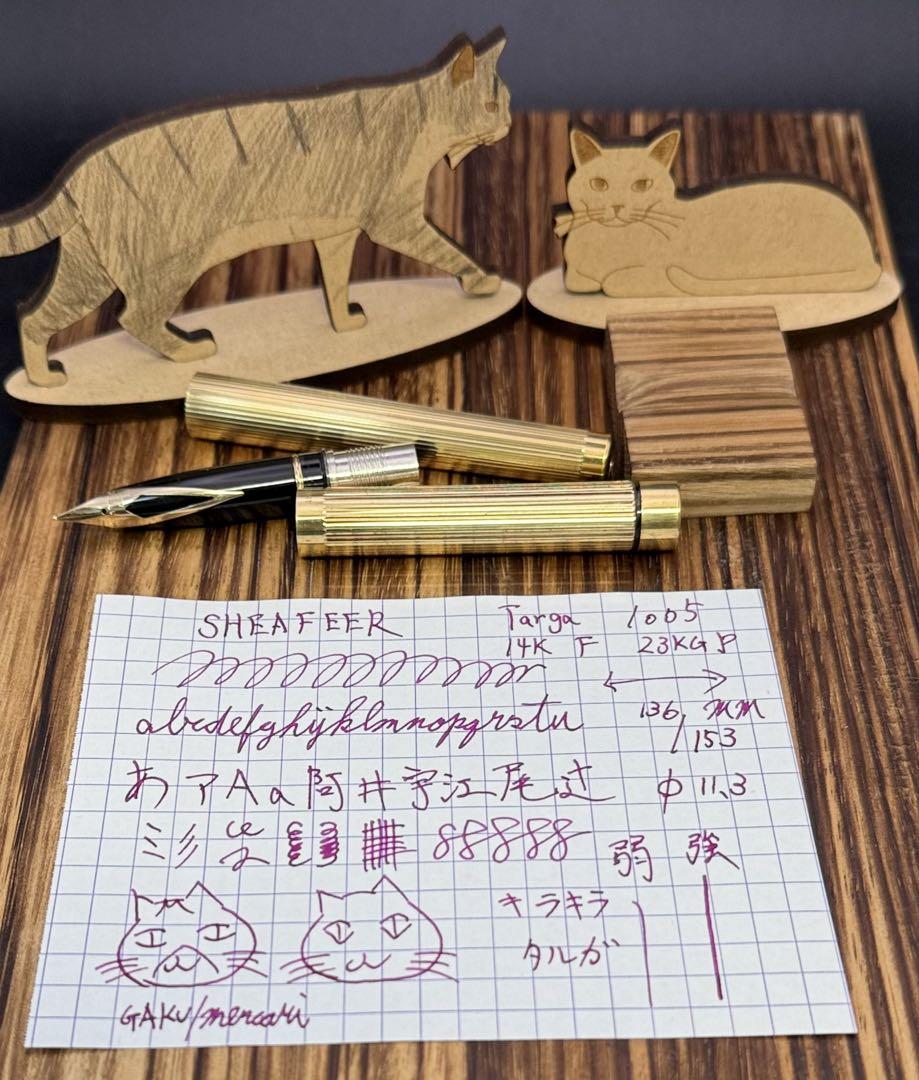 SHEAFEER
Targa 1005
14K F 23KGP
abcdefghijklmnopqrstu
136 mm
/153
あアAa阿井宇江尾辻
φ11.3
弱 強
キラキラ
タルガ
GAKU/mercari